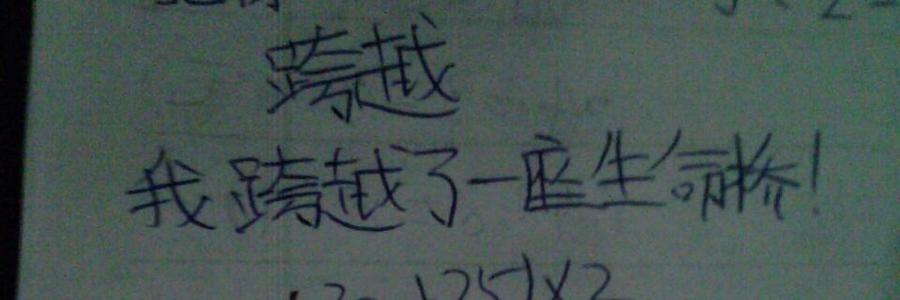 跨越
我跨越了一座生命桥!